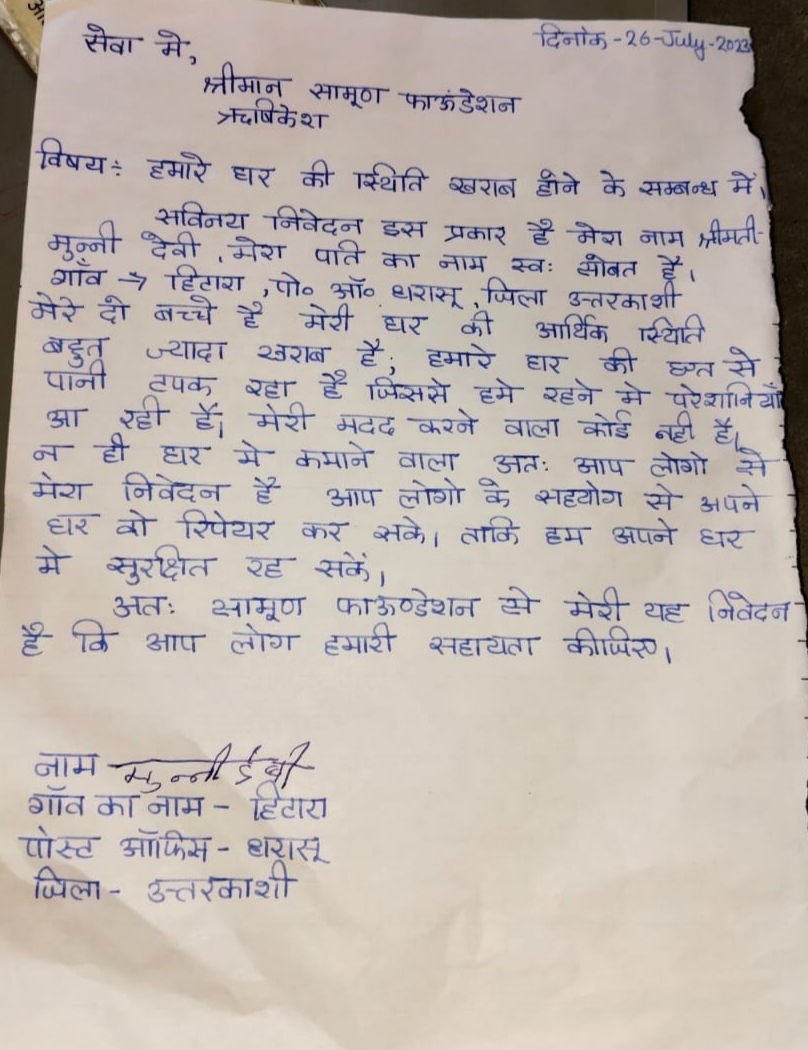 दिनांक - 26-July-2023
सेवा मे,
श्रीमान सामूण फाऊंडेशन
ऋषिकेश
विषय:- हमारे घर की स्थिति खराब होने के सम्बन्ध में।
सविनय निवेदन इस प्रकार है मेरा नाम श्रीमती-
मुन्नी देवी, मेरा पति का नाम स्व: सोबत है।
गाँव → हिटारा, पो० ऑ० धरासू, जिला उत्तरकाशी
मेरे दो बच्चे है मेरी घर की आर्थिक स्थिति
बहुत ज्यादा खराब है; हमारे घर की छत से
पानी टपक रहा है जिससे हमे रहने मे परेशानियाँ
आ रही है। मेरी मदद करने वाला कोई नही है।
न ही घर मे कमाने वाला अत: आप लोगो से
मेरा निवेदन है आप लोगो के सहयोग से अपने
घर को रिपेयर कर सके। ताकि हम अपने घर
मे सुरक्षित रह सकें।
अत: सामूण फाऊण्डेशन से मेरी यह निवेदन
है कि आप लोग हमारी सहायता कीजिए।
नाम - मुन्नी देवी
गाँव का नाम - हिटारा
पोस्ट ऑफिस - धरासू
जिला - उत्तरकाशी